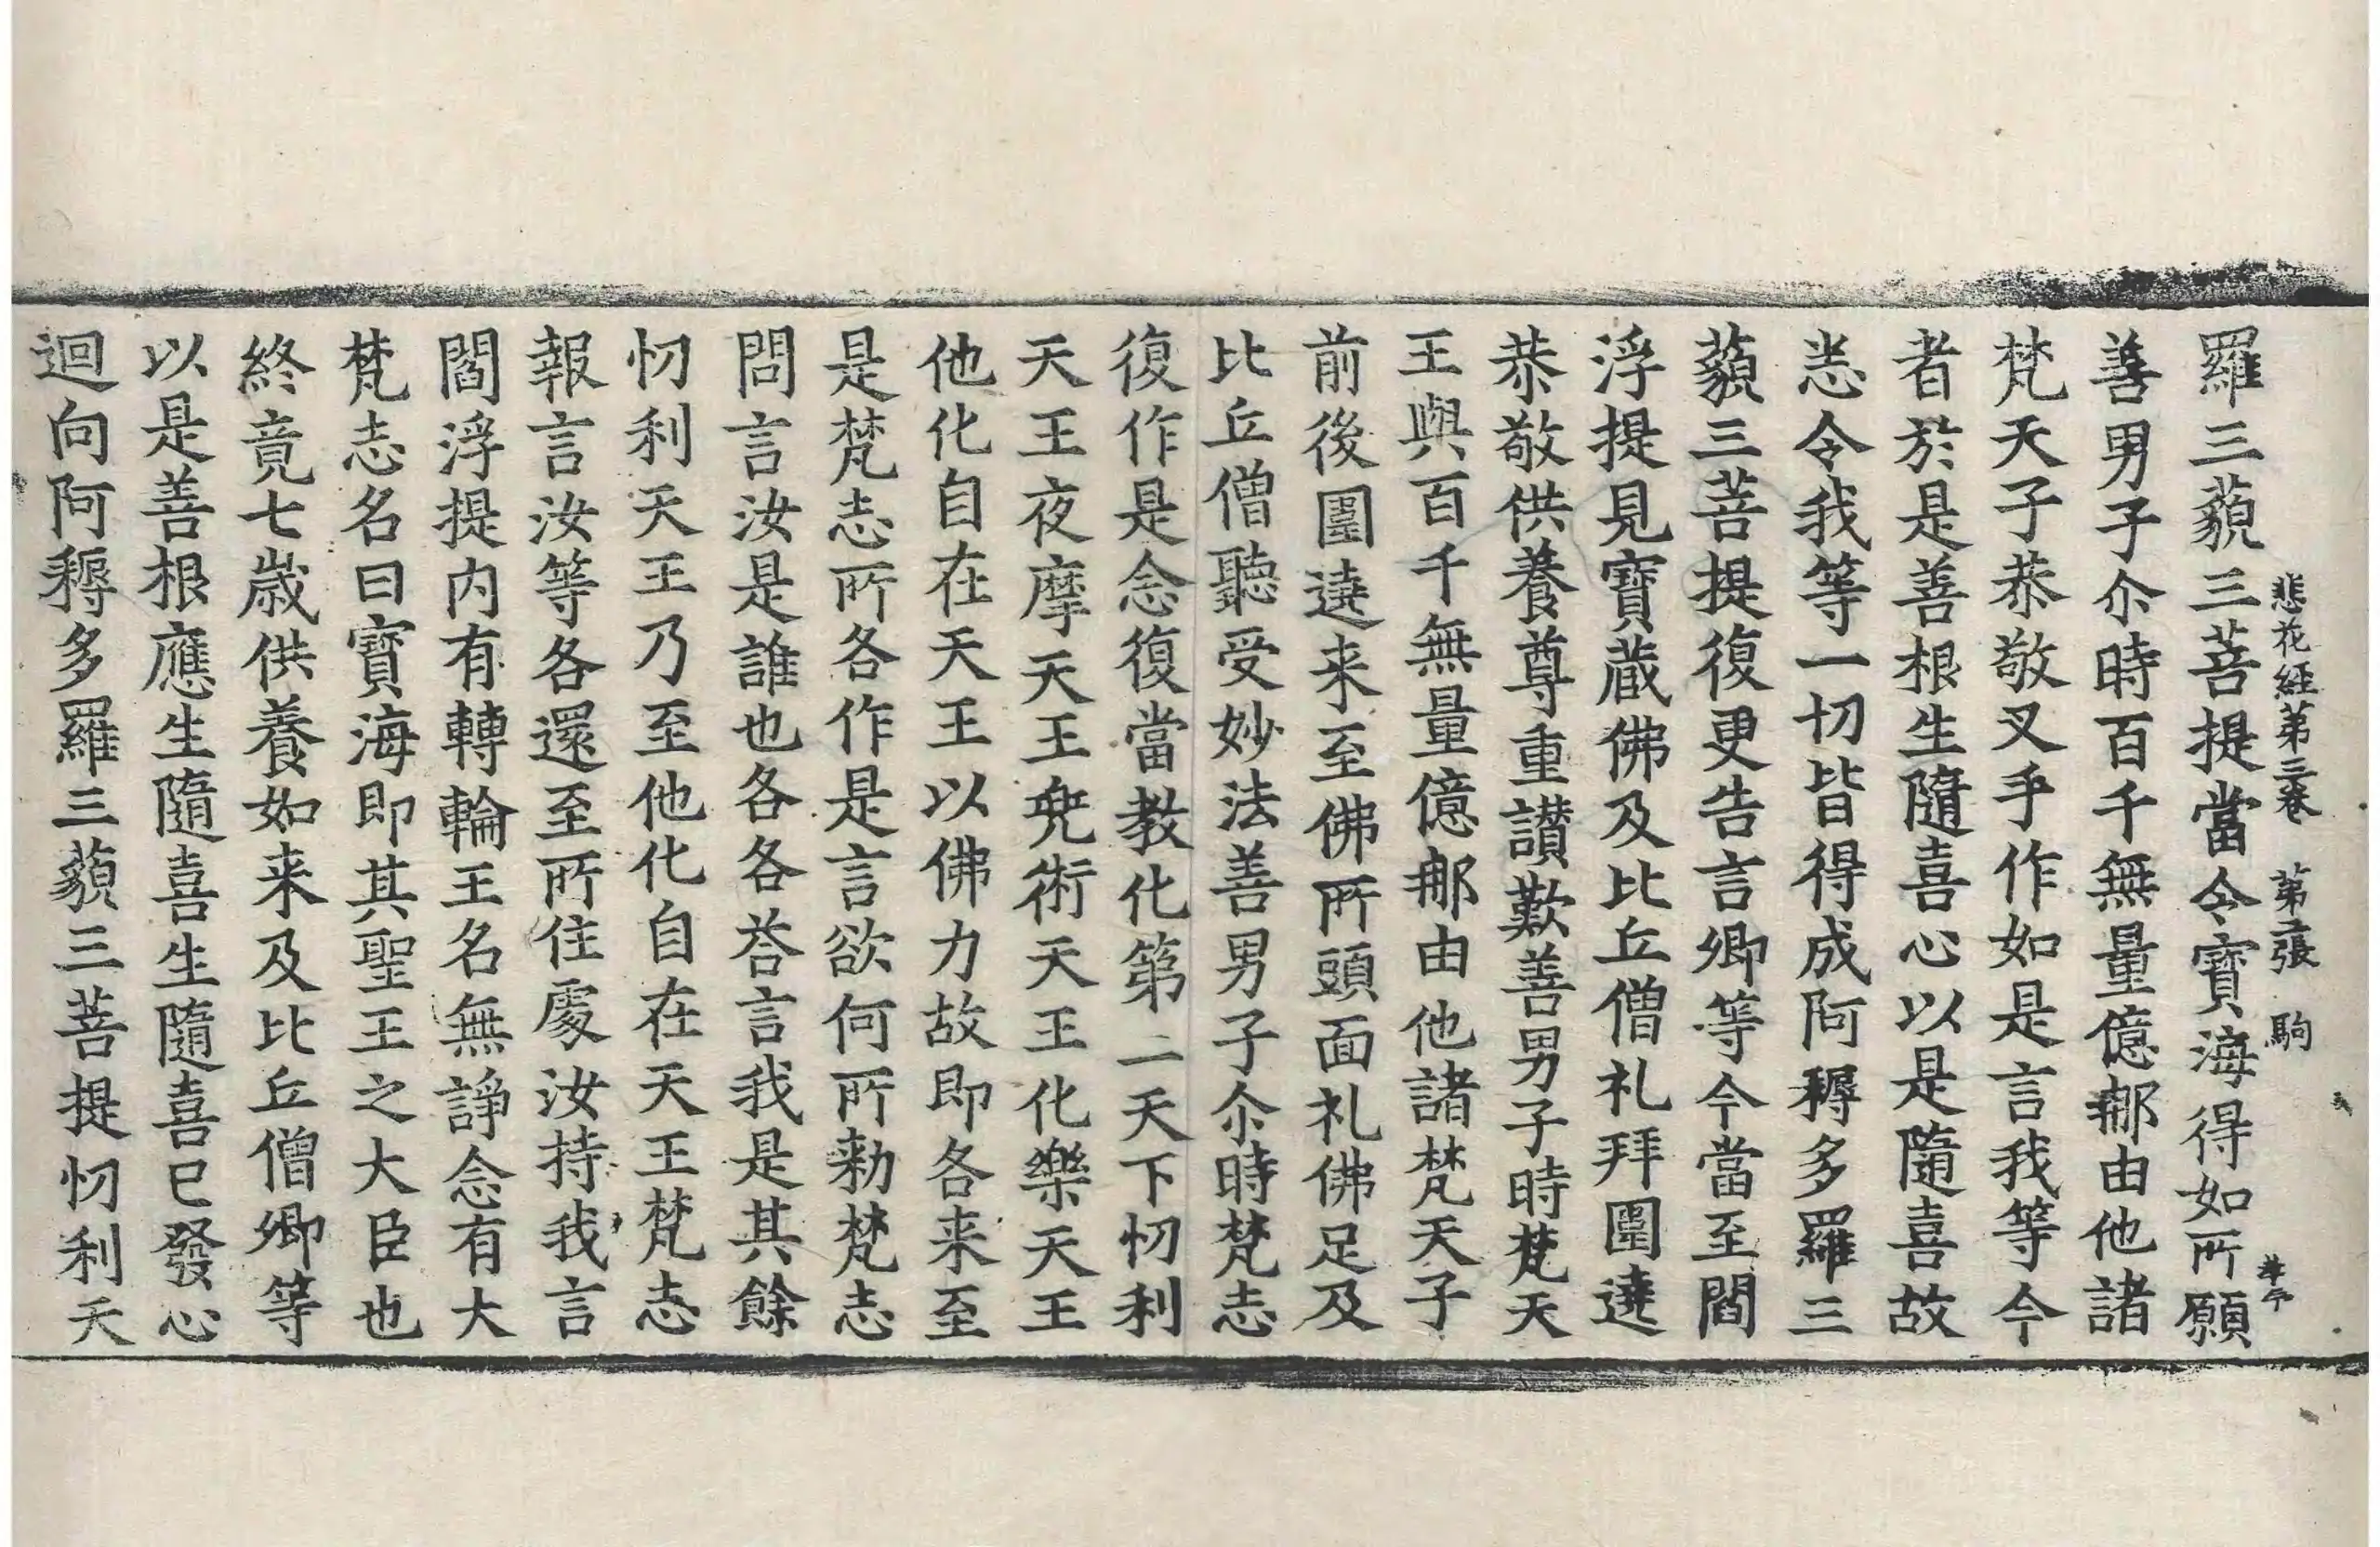 悲花経第三巻 第二張 駒
羅三藐三菩提當令寶海得如所願
善男子尒時百千無量億那由他諸
梵天子恭敬叉手作如是言我等今
者於是善根生隨喜心以是隨喜故
悉令我等一切皆得成阿耨多羅三
藐三菩提復更告言卿等今當至閻
浮提見寶蔵佛及比丘僧礼拜圍遶
恭敬供養尊重讃歎善男子時梵天
王與百千無量億那由他諸梵天子
前後圍遶来至佛所頭面礼佛足及
比丘僧聽受妙法善男子尒時梵志
復作是念復當教化第二天下忉利
天王夜摩天王兜術天王化樂天王
他化自在天王以佛力故即各来至
是梵志所各作是言欲何所勑梵志
問言汝是誰也各各荅言我是其餘
忉利天王乃至他化自在天王梵志
報言汝等各還至所住處汝持我言
閻浮提内有轉輪王名無諍念有大
梵志名曰寶海即其聖王之大臣也
終竟七歳供養如来及比丘僧卿等
以是善根應生隨喜生隨喜已發心
迴向阿耨多羅三藐三菩提忉利天